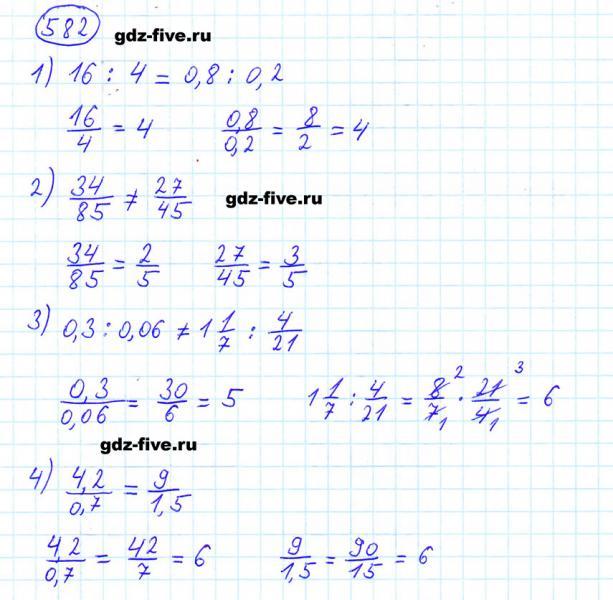 582 gdz-five.ru
1) 16 : 4 = 0,8 : 0,2
16/4 = 4 0,8/0,2 = 8/2 = 4
2) 34/85 ≠ 27/45 gdz-five.ru
34/85 = 2/5 27/45 = 3/5
3) 0,3 : 0,06 ≠ 1 1/7 : 4/21
0,3/0,06 = 30/6 = 5 1 1/7 : 4/21 = 8 2/7 1 · 21 3/4 1 = 6
gdz-five.ru
4) 4,2/0,7 = 9/1,5
4,2/0,7 = 42/7 = 6 9/1,5 = 90/15 = 6